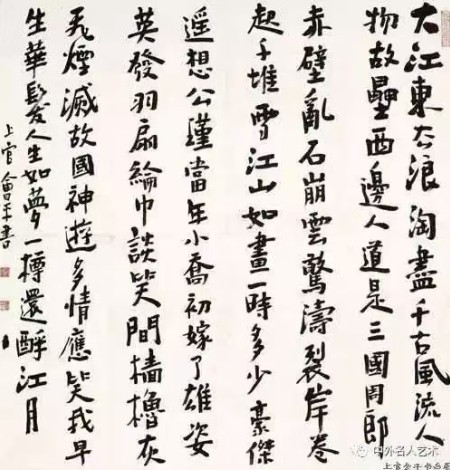 大江東去浪淘盡千古風流人
物故壘西邊人道是三國周郎
赤壁亂石崩雲驚濤裂岸卷
起千堆雪江山如畫一時多少豪傑
遥想公瑾當年小喬初嫁了雄姿
英發羽扇綸巾談笑間檣櫓灰
飛煙滅故國神遊多情應笑我早
生華髮人生如夢一樽還酹江月
上官會平書
中外名人艺术